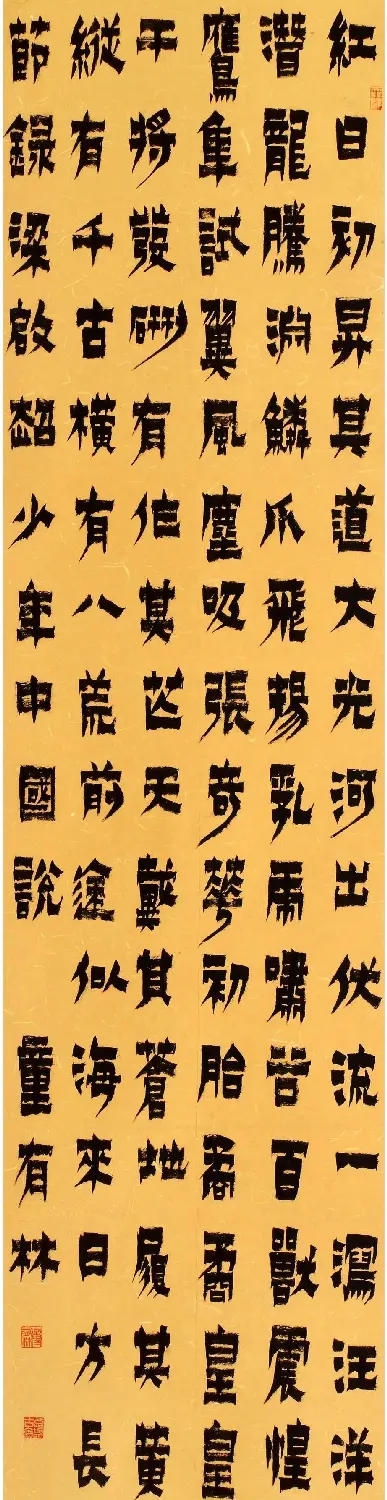 紅日初昇其道大光河出伏流一瀉汪洋
潛龍騰淵鱗爪飛揚乳虎嘯谷百獸震惶
鷹隼試翼風塵吸張奇華初胎矞矞皇皇
干將發硎有作其芒天戴其蒼地履其黃
縱有千古橫有八荒前途似海來日方長
節錄梁啟超少年中國說 童有林